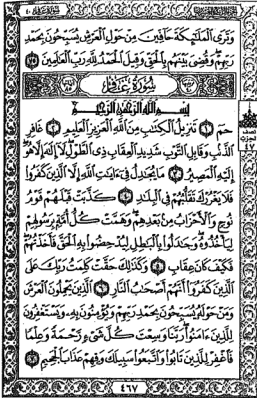 وَتَرَى ٱلْمَلَٰٓئِكَةَ حَآفِّينَ مِنْ حَوْلِ ٱلْعَرْشِ يُسَبِّحُونَ بِحَمْدِ
رَبِّهِمْ وَقُضِىَ بَيْنَهُم بِٱلْحَقِّ وَقِيلَ ٱلْحَمْدُ لِلَّهِ رَبِّ ٱلْعَٰلَمِينَ ٧٥
سُورَةُ غَافِرٍ
بِسْمِ ٱللَّهِ ٱلرَّحْمَٰنِ ٱلرَّحِيمِ
حمٓ ١ تَنزِيلُ ٱلْكِتَٰبِ مِنَ ٱللَّهِ ٱلْعَزِيزِ ٱلْعَلِيمِ ٢ غَافِرِ
ٱلذَّنۢبِ وَقَابِلِ ٱلتَّوْبِ شَدِيدِ ٱلْعِقَابِ ذِى ٱلطَّوْلِ لَآ إِلَٰهَ إِلَّا هُوَ
إِلَيْهِ ٱلْمَصِيرُ ٣ مَا يُجَٰدِلُ فِىٓ ءَايَٰتِ ٱللَّهِ إِلَّا ٱلَّذِينَ كَفَرُوا۟
فَلَا يَغْرُرْكَ تَقَلُّبُهُمْ فِى ٱلْبِلَٰدِ ٤ كَذَّبَتْ قَبْلَهُمْ قَوْمُ
نُوحٍ وَٱلْأَحْزَابُ مِنۢ بَعْدِهِمْ وَهَمَّتْ كُلُّ أُمَّةٍۭ بِرَسُولِهِمْ
لِيَأْخُذُوهُ وَجَٰدَلُوا۟ بِٱلْبَٰطِلِ لِيُدْحِضُوا۟ بِهِ ٱلْحَقَّ فَأَخَذْتُهُمْ
فَكَيْفَ كَانَ عِقَابِ ٥ وَكَذَٰلِكَ حَقَّتْ كَلِمَتُ رَبِّكَ عَلَى
ٱلَّذِينَ كَفَرُوٓا۟ أَنَّهُمْ أَصْحَٰبُ ٱلنَّارِ ٦ ٱلَّذِينَ يَحْمِلُونَ ٱلْعَرْشَ
وَمَنْ حَوْلَهُۥ يُسَبِّحُونَ بِحَمْدِ رَبِّهِمْ وَيُؤْمِنُونَ بِهِۦ وَيَسْتَغْفِرُونَ
لِلَّذِينَ ءَامَنُوا۟ رَبَّنَا وَسِعْتَ كُلَّ شَىْءٍ رَّحْمَةً وَعِلْمًا
فَٱغْفِرْ لِلَّذِينَ تَابُوا۟ وَٱتَّبَعُوا۟ سَبِيلَكَ وَقِهِمْ عَذَابَ ٱلْجَحِيمِ ٧
٤٦٧